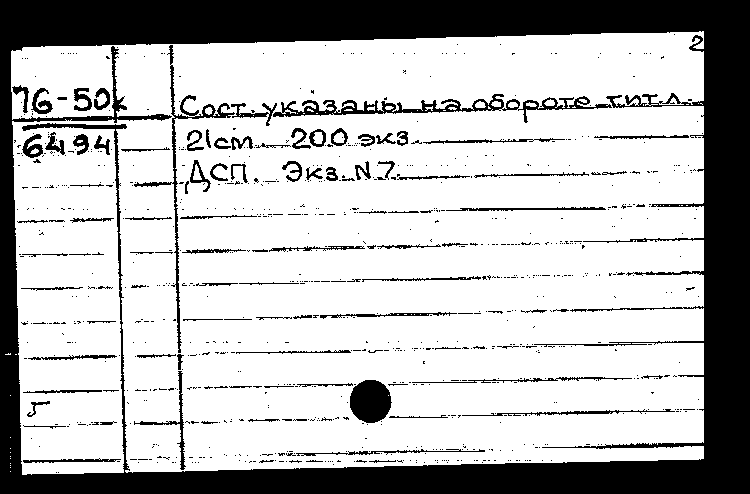 2
76-50к
6494
Сост. указаны на обороте тит. л.
21см. 200 экз.
ДСП. Экз. N 7.
5